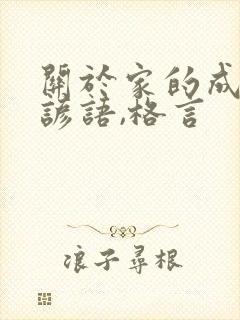 關於家的成
諺語,格言
浪子尋根